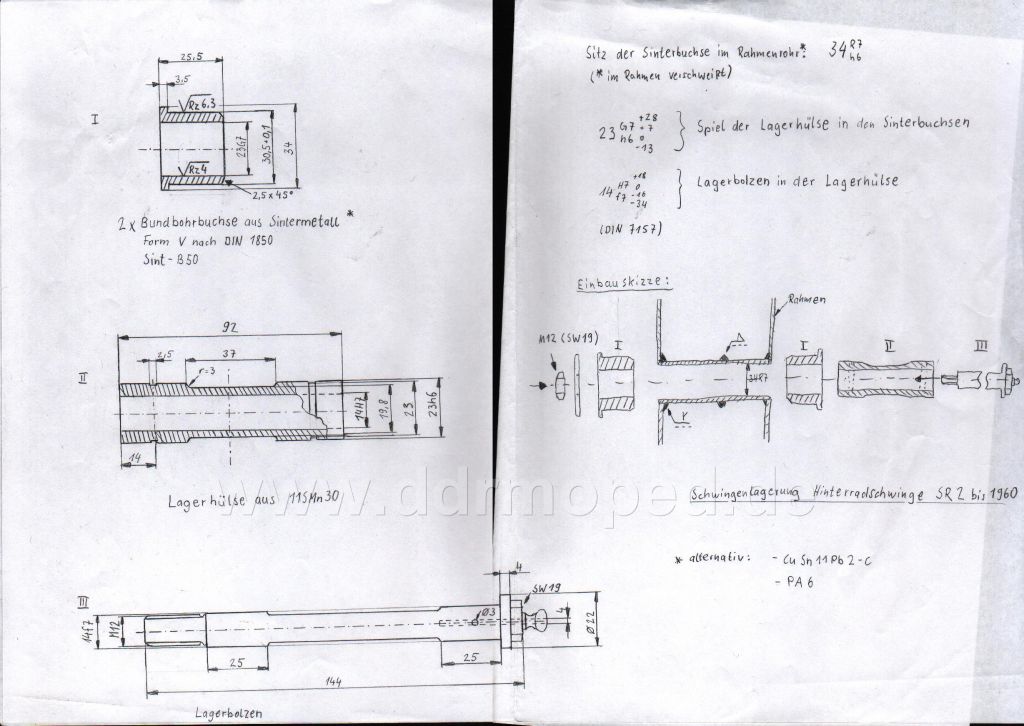 25,5
3,5
I
Rz 6,3
23G7
30,5+0,1
34
Rz 4
2,5 x 45°
2x Bundbohrbuchse aus Sintermetall *
Form V nach DIN 1850
Sint-B50
92
2,5
37
r=3
II
14H7
19,8
23
23h6
14
Lagerhülse aus 11SMn30
III
4
SW19
14f7
M12
Ø3
4
Ø22
25
25
144
Lagerbolzen
Sitz der Sinterbuchse im Rahmenrohr*: 34 R7
h6
(* im Rahmen verschweißt)
23 G7 +28
+7
h6 0
-13
Spiel der Lagerhülse in den Sinterbuchsen
14 H7 +18
0
f7 -16
-34
Lagerbolzen in der Lagerhülse
(DIN 7157)
Einbauskizze:
Rahmen
M12 (SW19)
I
I
II
III
34R7
r
Schwingenlagerung Hinterradschwinge SR2 bis 1960
* alternativ: - CuSn11Pb2-C
- PA6
www.ddrmoped.de